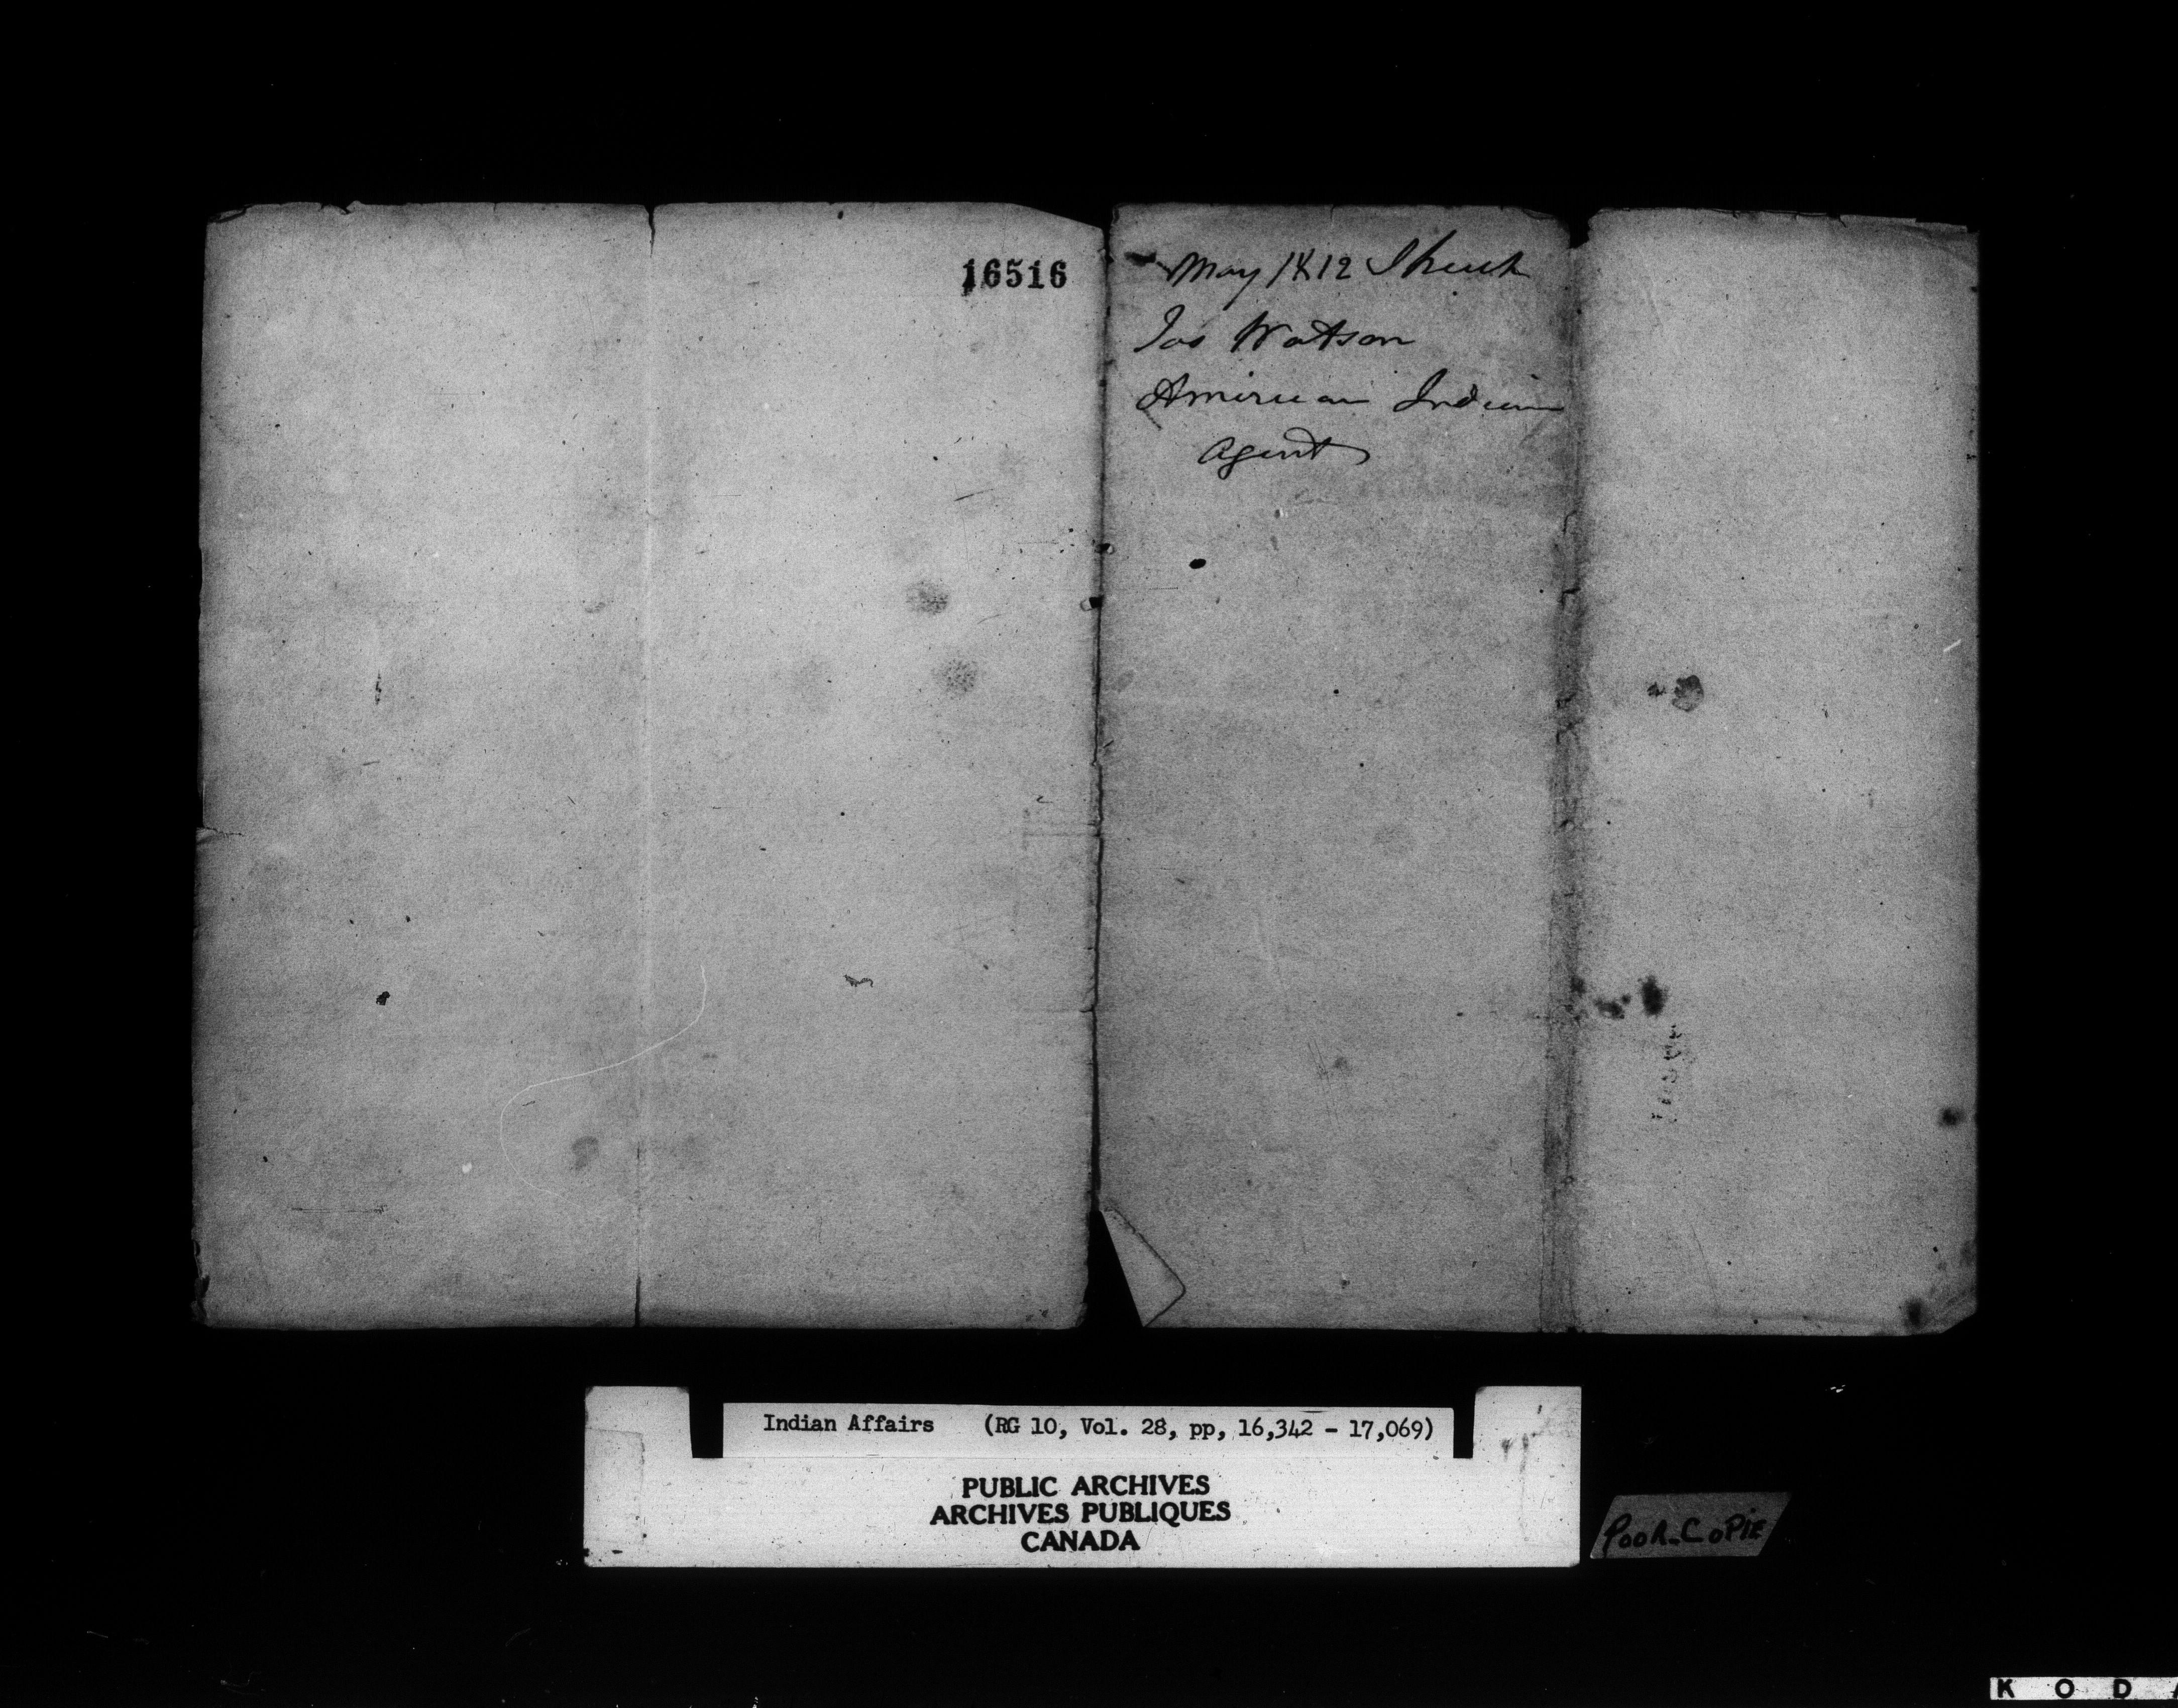 16516
May 1812 I think
Jos Watson
American Indian
Agent
Indian Affairs (RG 10, Vol. 28, pp, 16,342 - 17,069)
PUBLIC ARCHIVES
ARCHIVES PUBLIQUES
CANADA
POOR COPIE
KOD